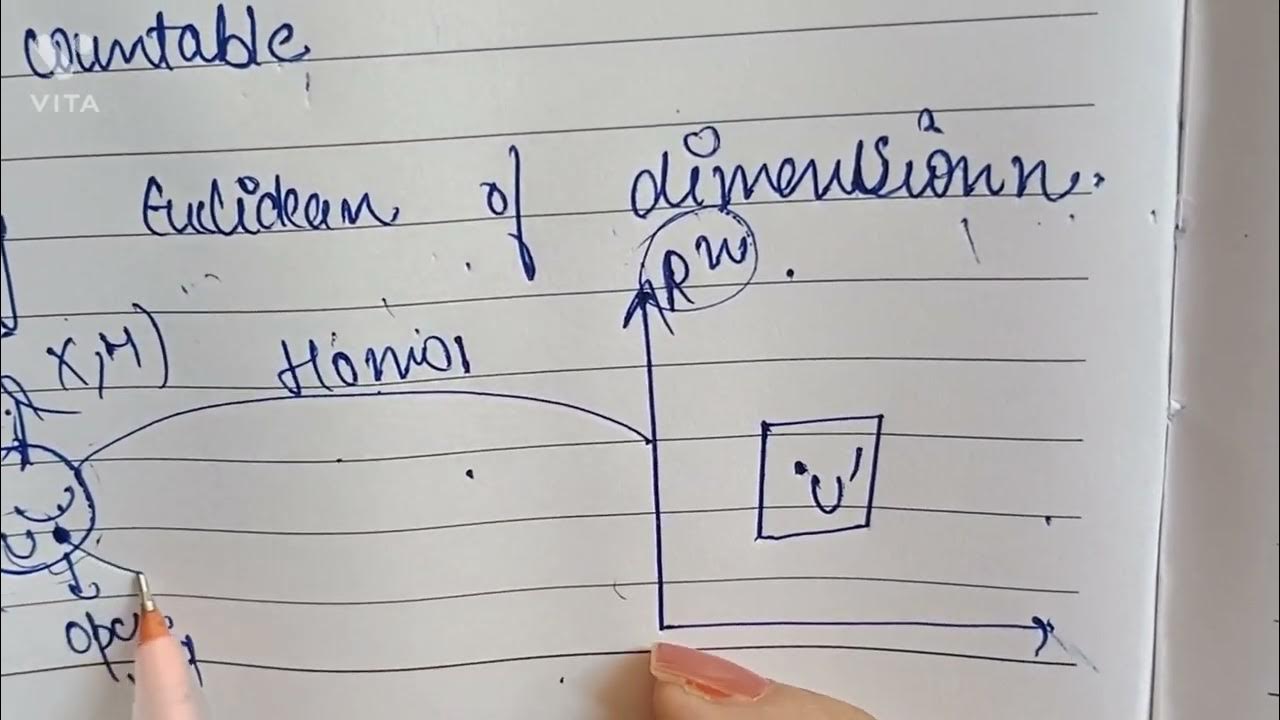 countable
VITA
Euclidean of dimension n.
Rⁿ
X, M)
Homo
U'
U
open